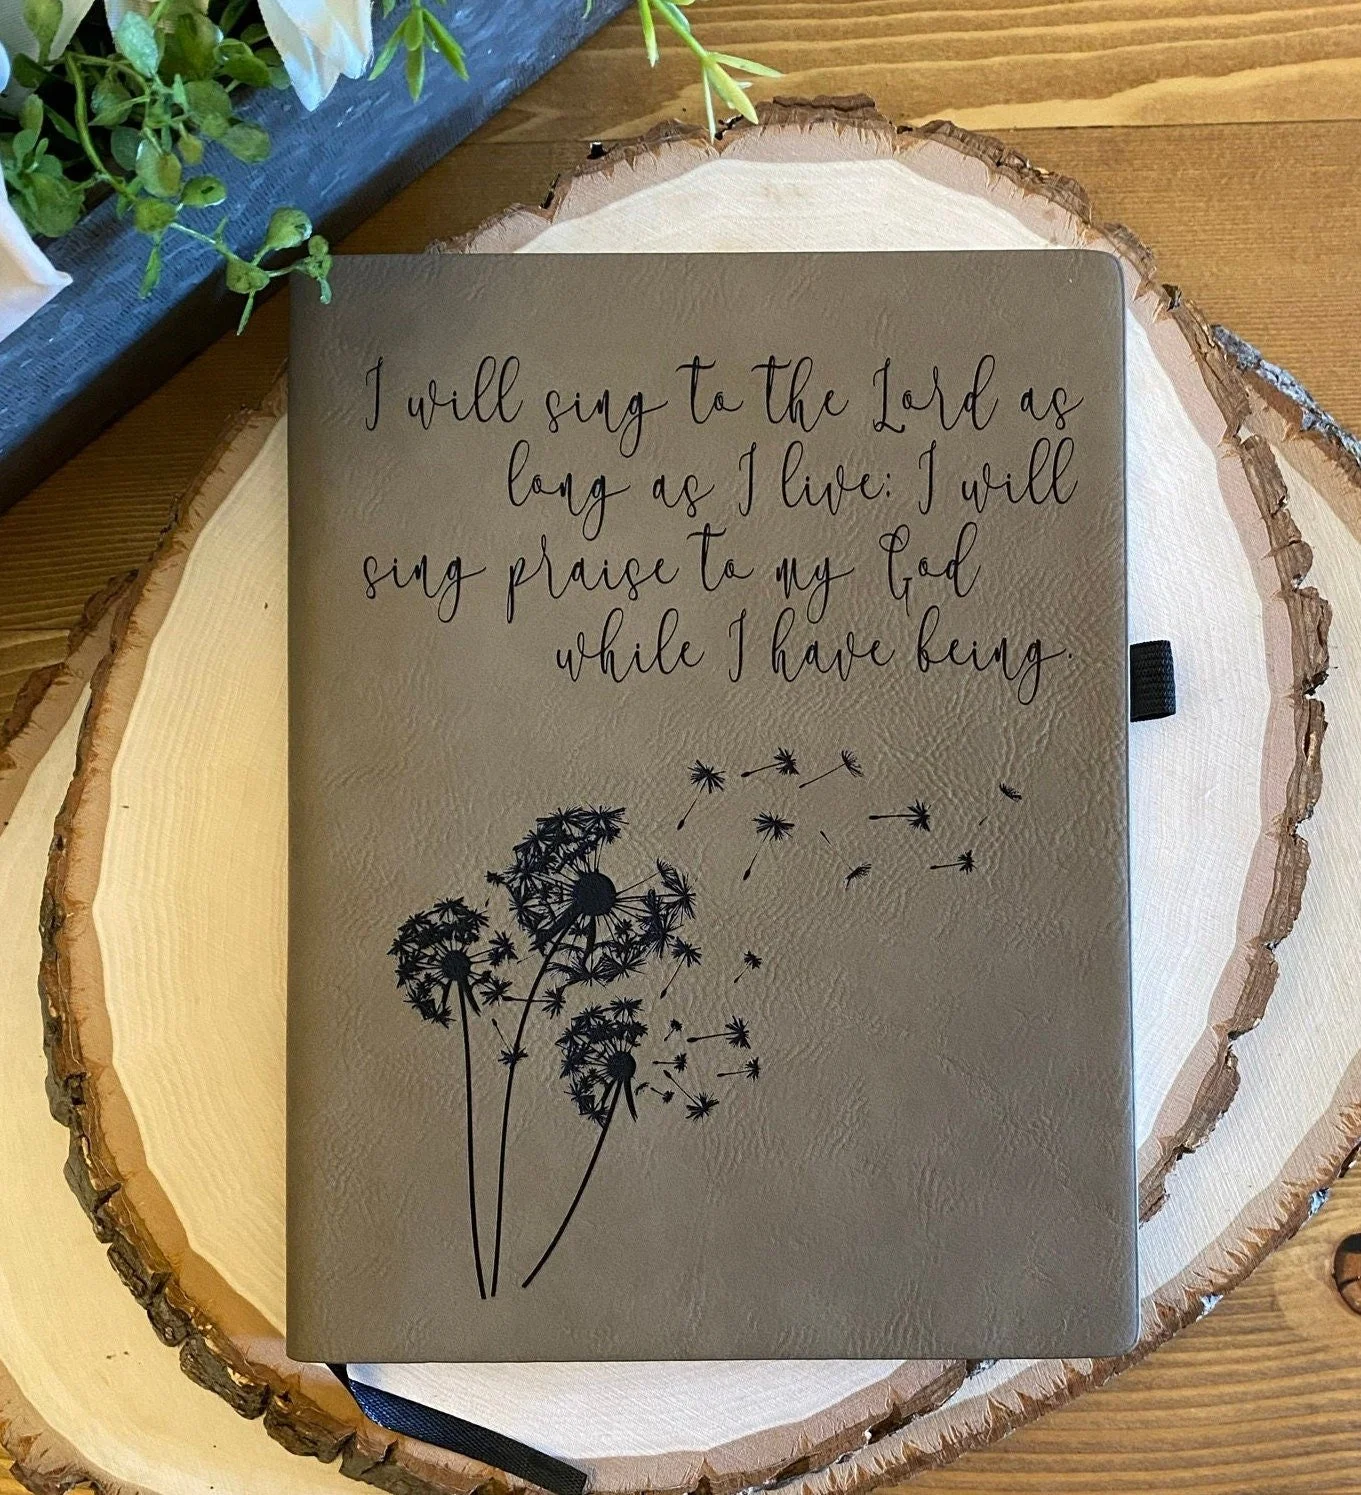 I will sing to the Lord as
long as I live: I will
sing praise to my God
while I have being.